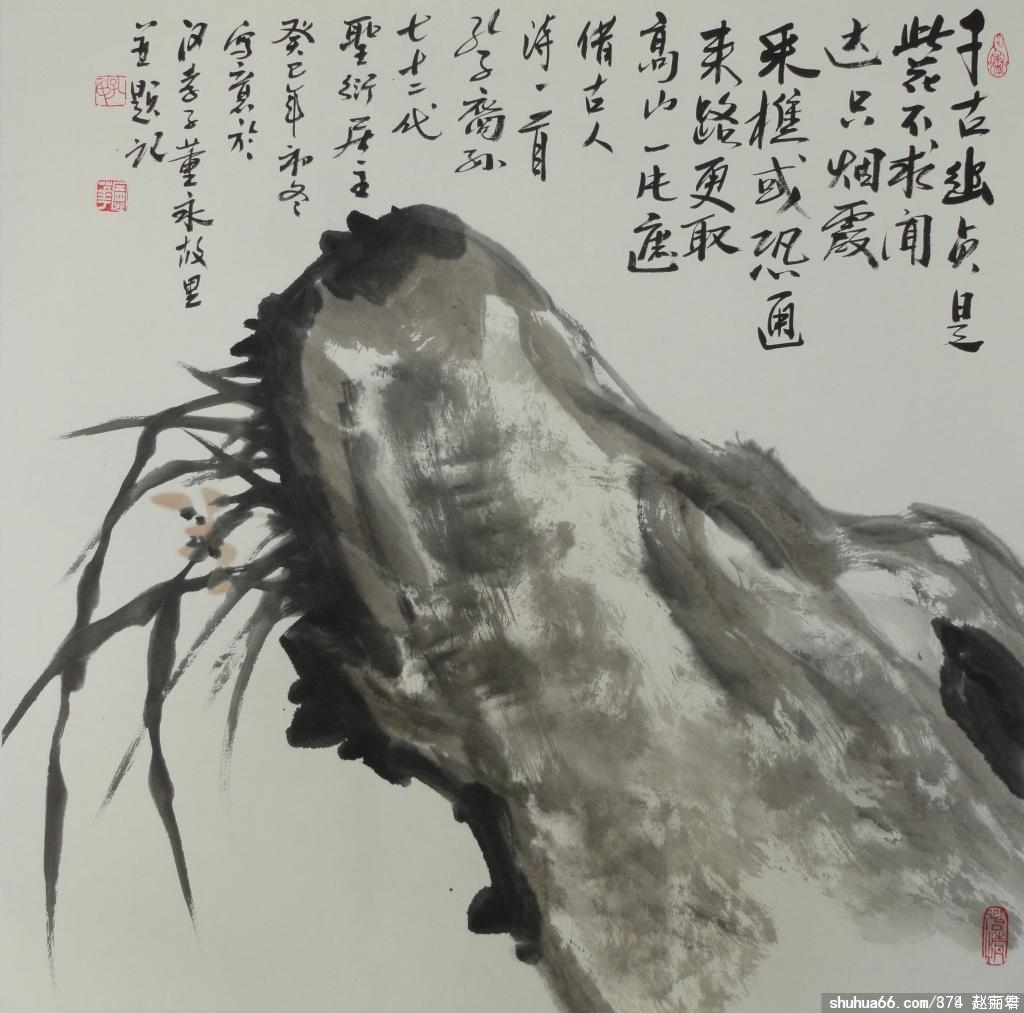 千古幽贞是
此花不求闻
达只烟霞
采樵或恐通
来路更取
高山一片遮
借古人
诗一首
孔子裔孙
七十二代
聖衍居主
癸巳年初冬
写意於
汉孝子董永故里
並题记
shuhua66.com/374